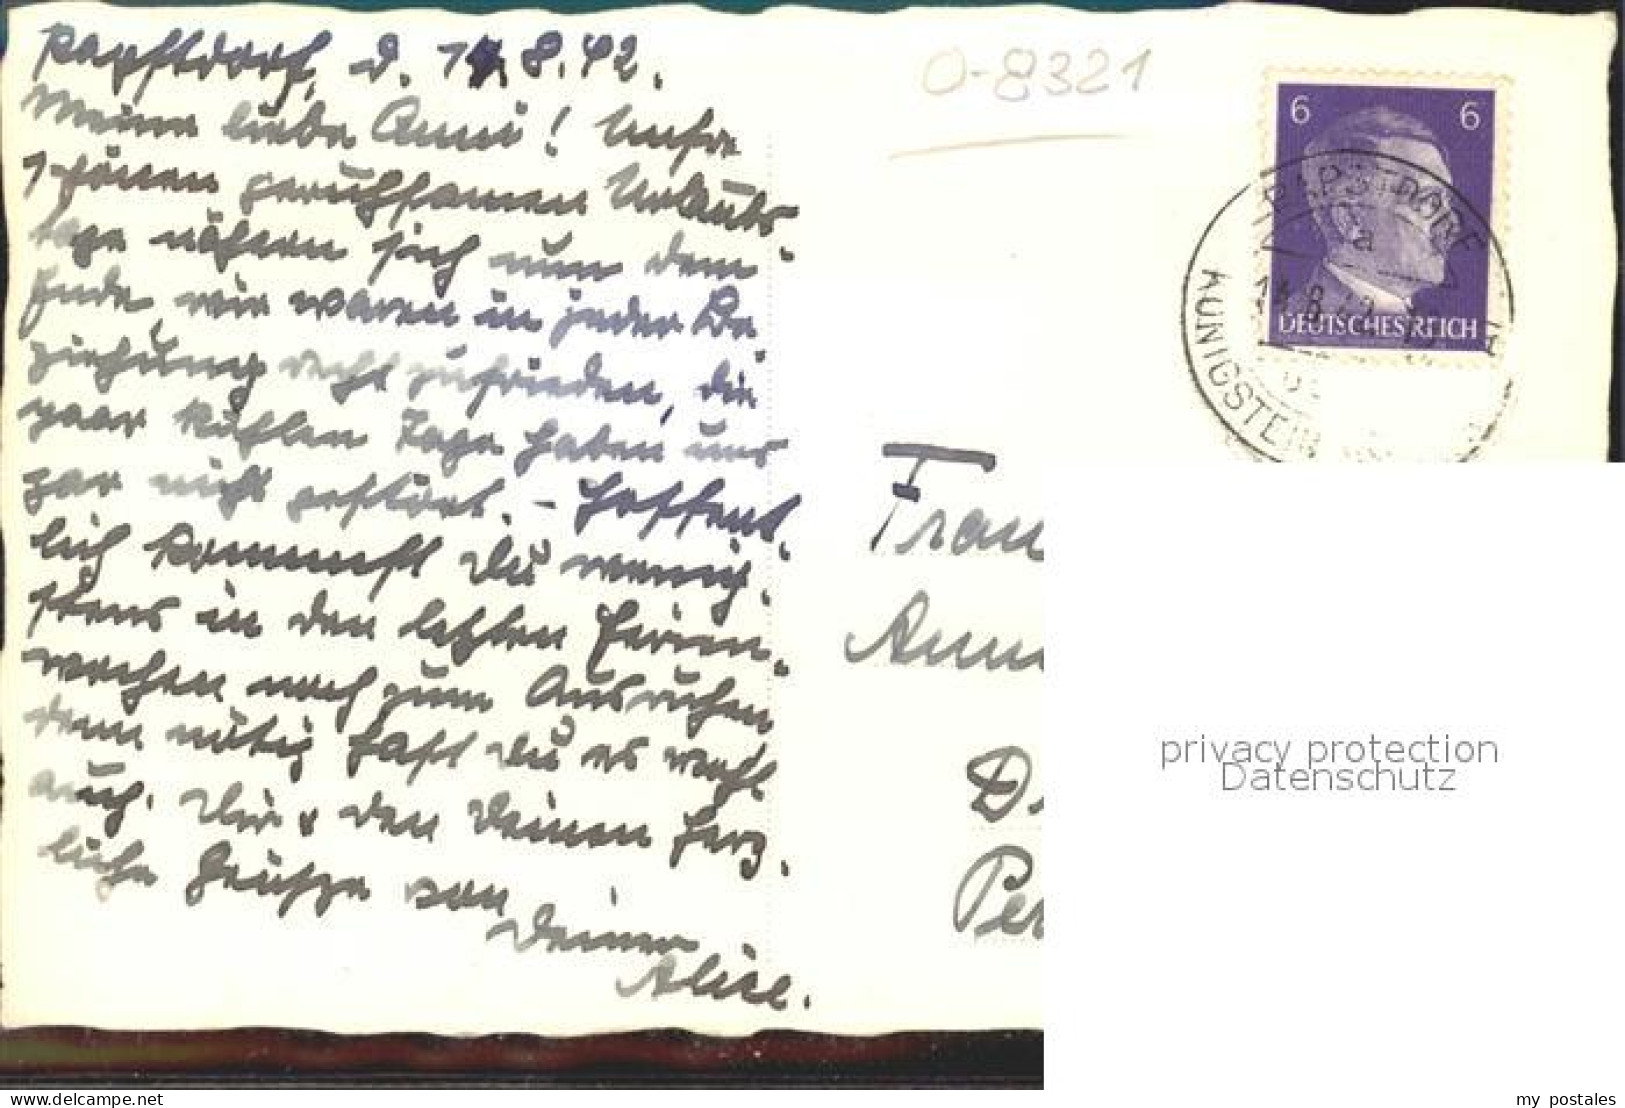 Papstdorf, d. 14.8.42.
Meine liebe Anni! Unsre
schönen geruhsamen Urlaubs-
tage nähern sich nun dem
Ende, wir waren in jeder Be
ziehung recht zufrieden, die
paar kühlen Tage haben uns
gar nicht gestört. – Hoffent-
lich kommst Du wenig-
stens in den letzten Ferien-
wochen noch zum Ausruhen
denn nötig hast Du es wohl
auch. Dir & den Deinen herz-
liche Grüsse von
Deiner
Alice.
O-8321
6 6
DEUTSCHES REICH
PAPSTDORF
a
KÖNIGSTEIN
Frau
privacy protection
Datenschutz
www.delcampe.net
my_postales